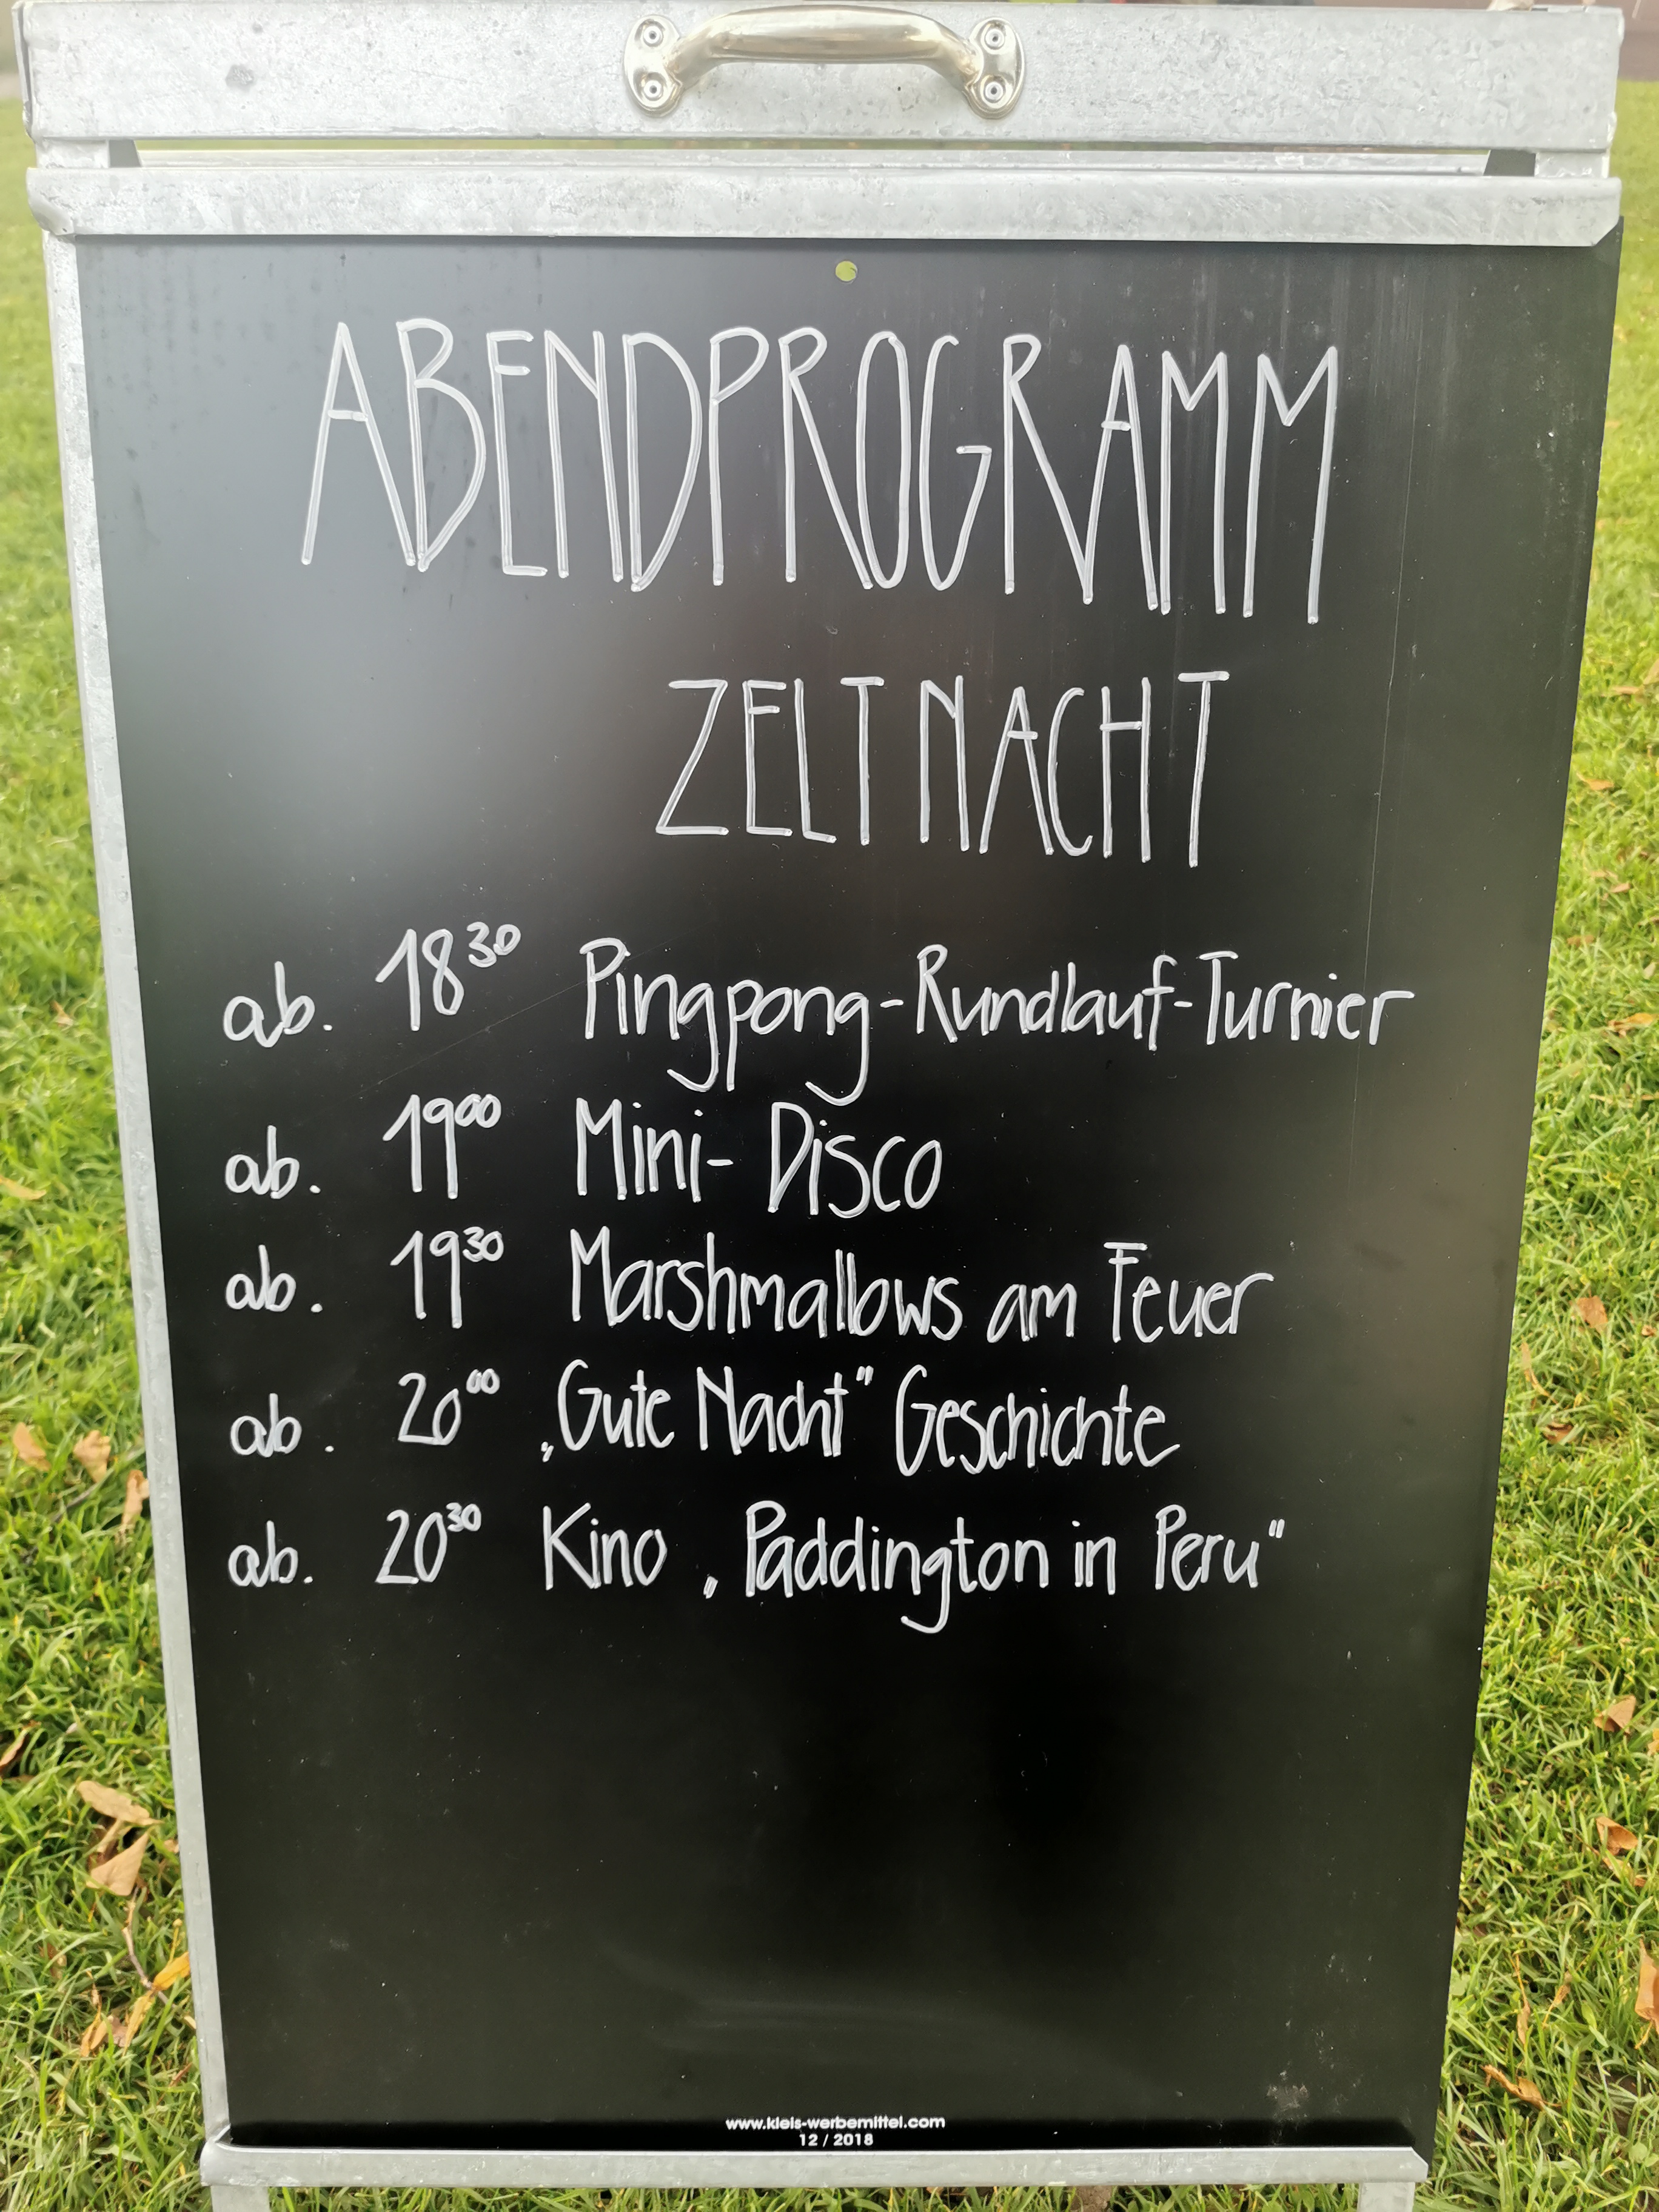 ABENDPROGRAMM
ZELTNACHT
ab. 18³⁰ Pingpong-Rundlauf-Turnier
ab. 19⁰⁰ Mini-Disco
ab. 19³⁰ Marshmallows am Feuer
ab. 20⁰⁰ „Gute Nacht" Geschichte
ab. 20³⁰ Kino „Paddington in Peru"
www.kleis-werbemittel.com
12 / 2018